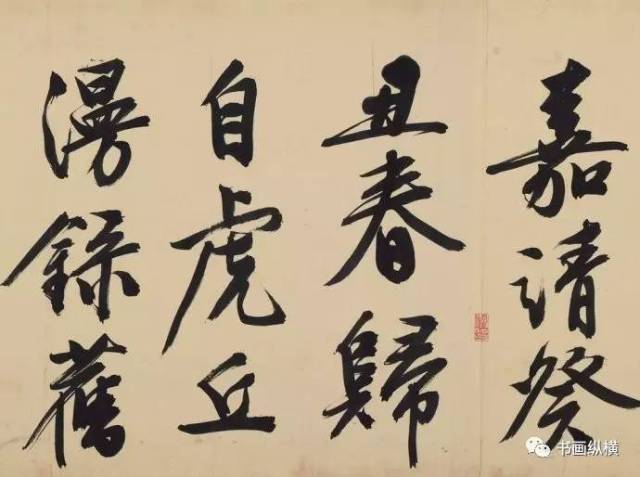 嘉靖癸
丑春歸
自虎丘
漫錄舊
书画纵横